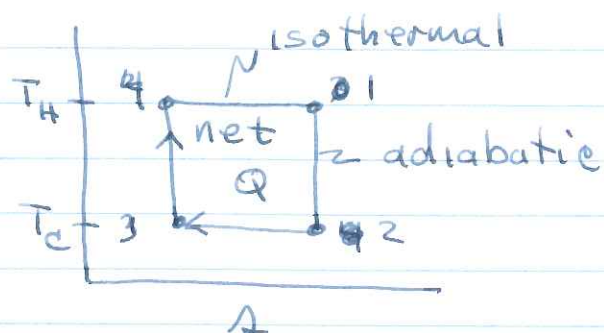 isothermal
T_H 4 1
net
adiabatic
Q
T_C 3 2
s